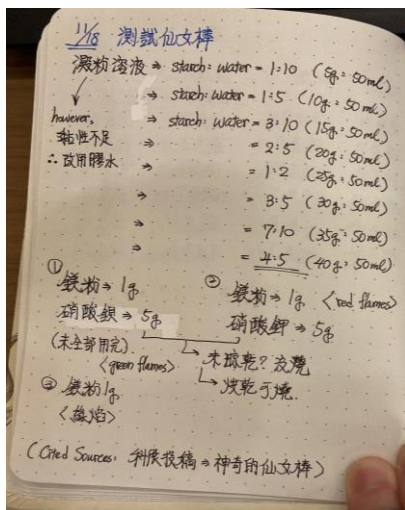 11/18 測試仙女棒
澱粉溶液 ⇒ starch: water = 1:10 (5g : 50ml)
⇒ starch: water = 1:5 (10g : 50ml)
however, ⇒ starch: water = 3:10 (15g : 50ml)
黏性不足 ⇒ = 2:5 (20g : 50ml)
∴ 改用膠水 ⇒ = 1:2 (25g : 50ml)
⇒ = 3:5 (30g : 50ml)
⇒ = 7:10 (35g : 50ml)
⇒ = 4:5 (40g : 50ml)
① 鎂粉 ⇒ 1g
硝酸鋇 ⇒ 5g
(未全部用完)
<green flames>
② 鎂粉 ⇒ 1g <red flames>
硝酸鉀 ⇒ 5g
↳ 未燒乾? 沒燒
↳ 烘乾可燒.
③ 鎂粉 1g
<綠焰>
(Cited Sources: 科展投稿 ⇒ 神奇的仙女棒)